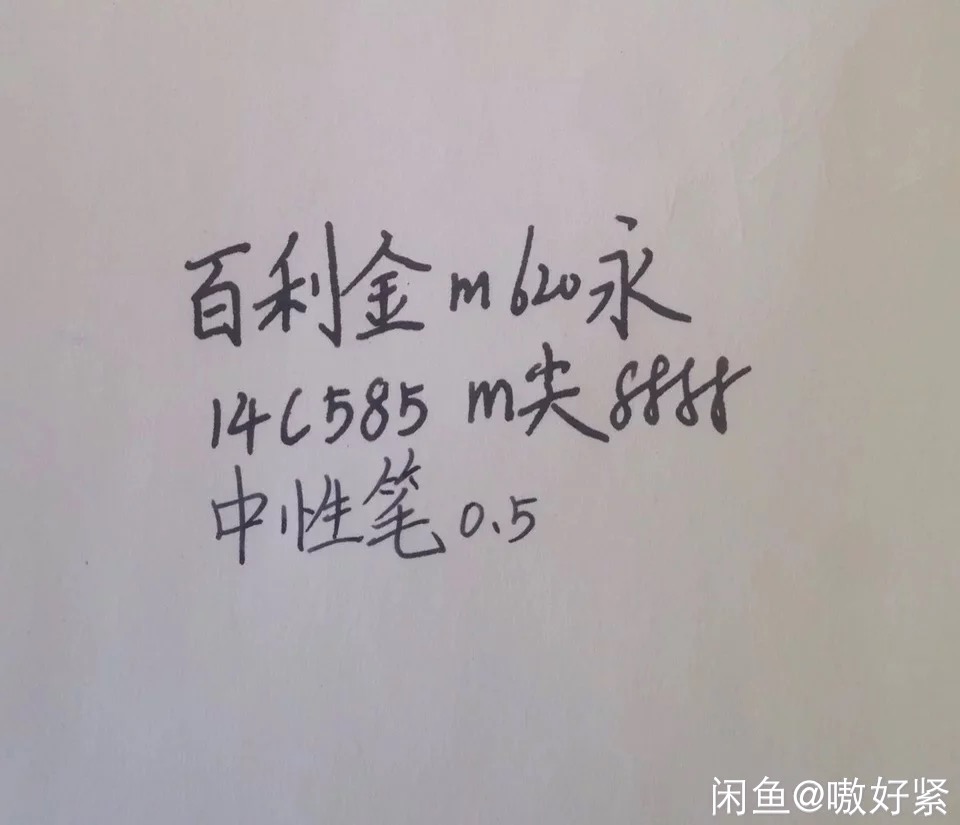 百利金m620永
14C585 m尖ffff
中性笔0.5
闲鱼@嗷好紧